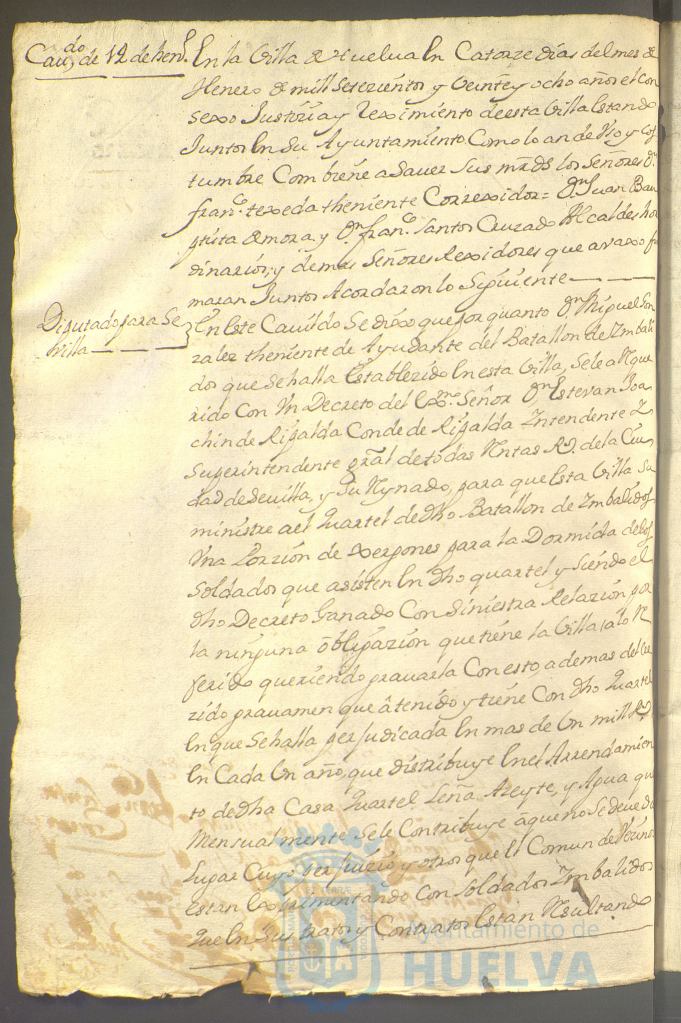 Cavdo de 12 de henº
En la Villa de Huelva En Catorze dias del mes de
Henero de mill Setezientos y Veinte y ocho años el Con
sexo Justizia y Reximiento de esta Villa Estando
Juntos En Su Ayuntamiento Como lo an de Vso y Cos
tumbre Combiene a Sauer Sus mrds los Señores Dn
franco texeda theniente Correxidor = Dn Juan Bau
ptista de mora y Dn franco Santos Cruzado Alcaldes hor
dinarios, y demas Señores Rexidores que auaxo fir
maran Juntos Acordaron lo Siguiente
Diputado para Se
villa
En Este Cauildo Se dixo que por quanto Dn Miguel Gon
zalez theniente de Ayudante del Batallon de Imbali
dos que Se halla Establezido En esta Villa, Sele a Reque
rido Con Vn Decreto del Exmo Señor Dn Estevan Joa
chin de Ripalda Conde de Ripalda Intendente Y
Superintendente gral de todas Rentas Rs de la Ciu
dad de Sevilla, y Su Reynado, para que Esta Villa Su
ministre a el Quartel de dho Batallon de Imbalidos
Vna Porzion de xergones para la Dormida de los
Soldados que asisten En dho quartel y Siendo el
dho Decreto Ganado Con Siniestra Relazion por
la ninguna obligazion que tiene la Villa a lo Re
ferido queriendo grauarla Con esto, a demas del cre
zido grauamen que a tenido y tiene Con dho Quartel
En que Se halla perjudicada En mas de Un mill Rs
En Cada Un año, que distribuye En el Arrendamien
to de dha Casa Quartel Leña Azeyte, y Agua que
Mensualmente Se le Contribuye a que no Se deue dar
Lugar Cuyo perjuizio y otros que El Comun de Vezinos
Estan Experimentando Con Soldados Imbalidos
que En Sus tratos y Contratos Estan Resultando
Ayuntamiento de
HUELVA